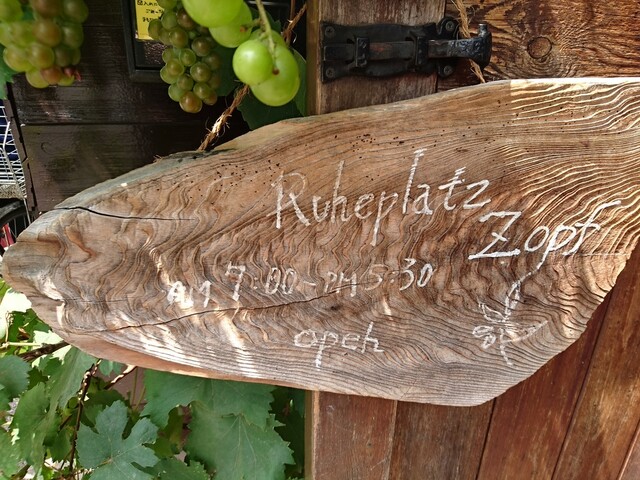 Ruheplatz
Zopf
AM 7:00-PM 5:30
open